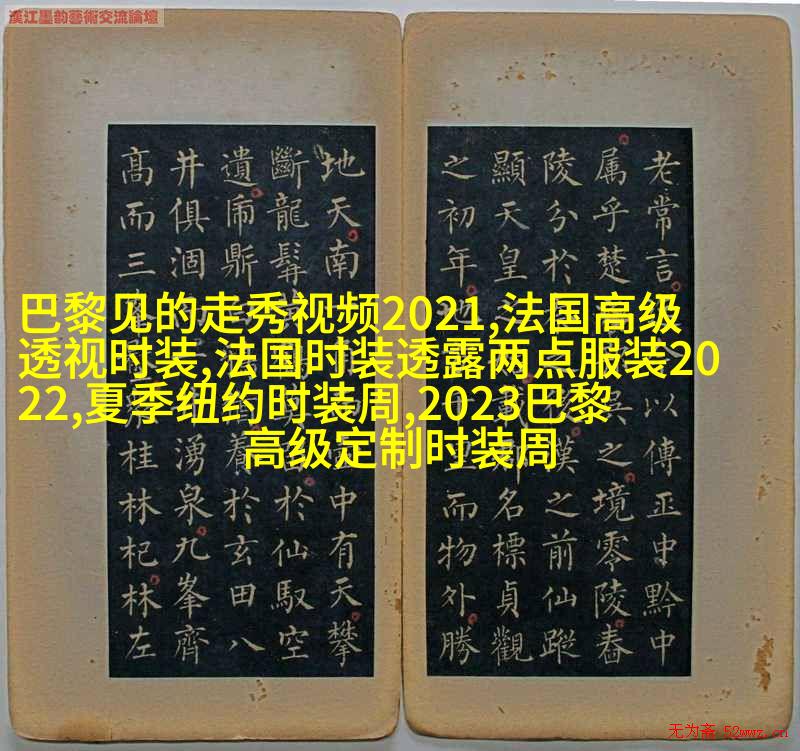 漢江墨韵藝術交流論壇
老常言以傳中黔中
属乎楚吳之境零陵春
陵分於漢之前仙蹤
顯天皇之名標貞觀
之初年里而物外勝
地天南中有天攀
斷龍髯於仙馭空
遺鼎着於玄田八
井俱涸湧泉九峯齊
高而三桂林杞林左
巴黎见的走秀视频2021,法国高级
透视时装,法国时装透露两点服装20
22,夏季纽约时装周,2023巴黎
高级定制时装周
无为斋 52wwz.cn